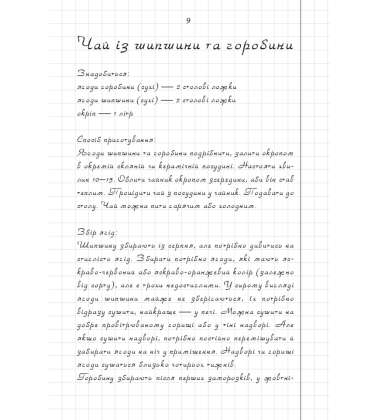 9
Чай із шипшини та горобини
Знадобиться:
ягоди горобини (сухі) — 2 столові ложки
ягоди шипшини (сухі) — 2 столові ложки
окріп — 1 літр
Спосіб приготування:
Ягоди шипшини та горобини подрібнити, залити окропом
в окремій скляній чи керамічній посудині. Настояти хви-
лин 10–15. Облити чайник окропом зсередини, аби він став
теплим. Процідити чай з посудини у чайник. Подавати до
столу. Чай можна пити гарячим або холодним.
Збір ягід:
Шипшину збирають із серпня, але потрібно дивитись на
стиглість ягід. Збирати потрібно ягоди, які мають яс-
краво-червоний або яскраво-оранжевий колір (залежно
від сорту), але є трохи недостиглими. У сирому вигляді
ягоди шипшини майже не зберігаються, їх потрібно
відразу сушити, найкраще — у печі. Можна сушити на
добре провітрюваному горищі або у тіні надворі. Але
якщо сушити надворі, потрібно постійно перемішувати й
забирати ягоди на ніч у приміщення. Надворі чи горищі
ягоди сушаться близько чотирьох тижнів.
Горобину збирають після перших заморозків, у жовтні-